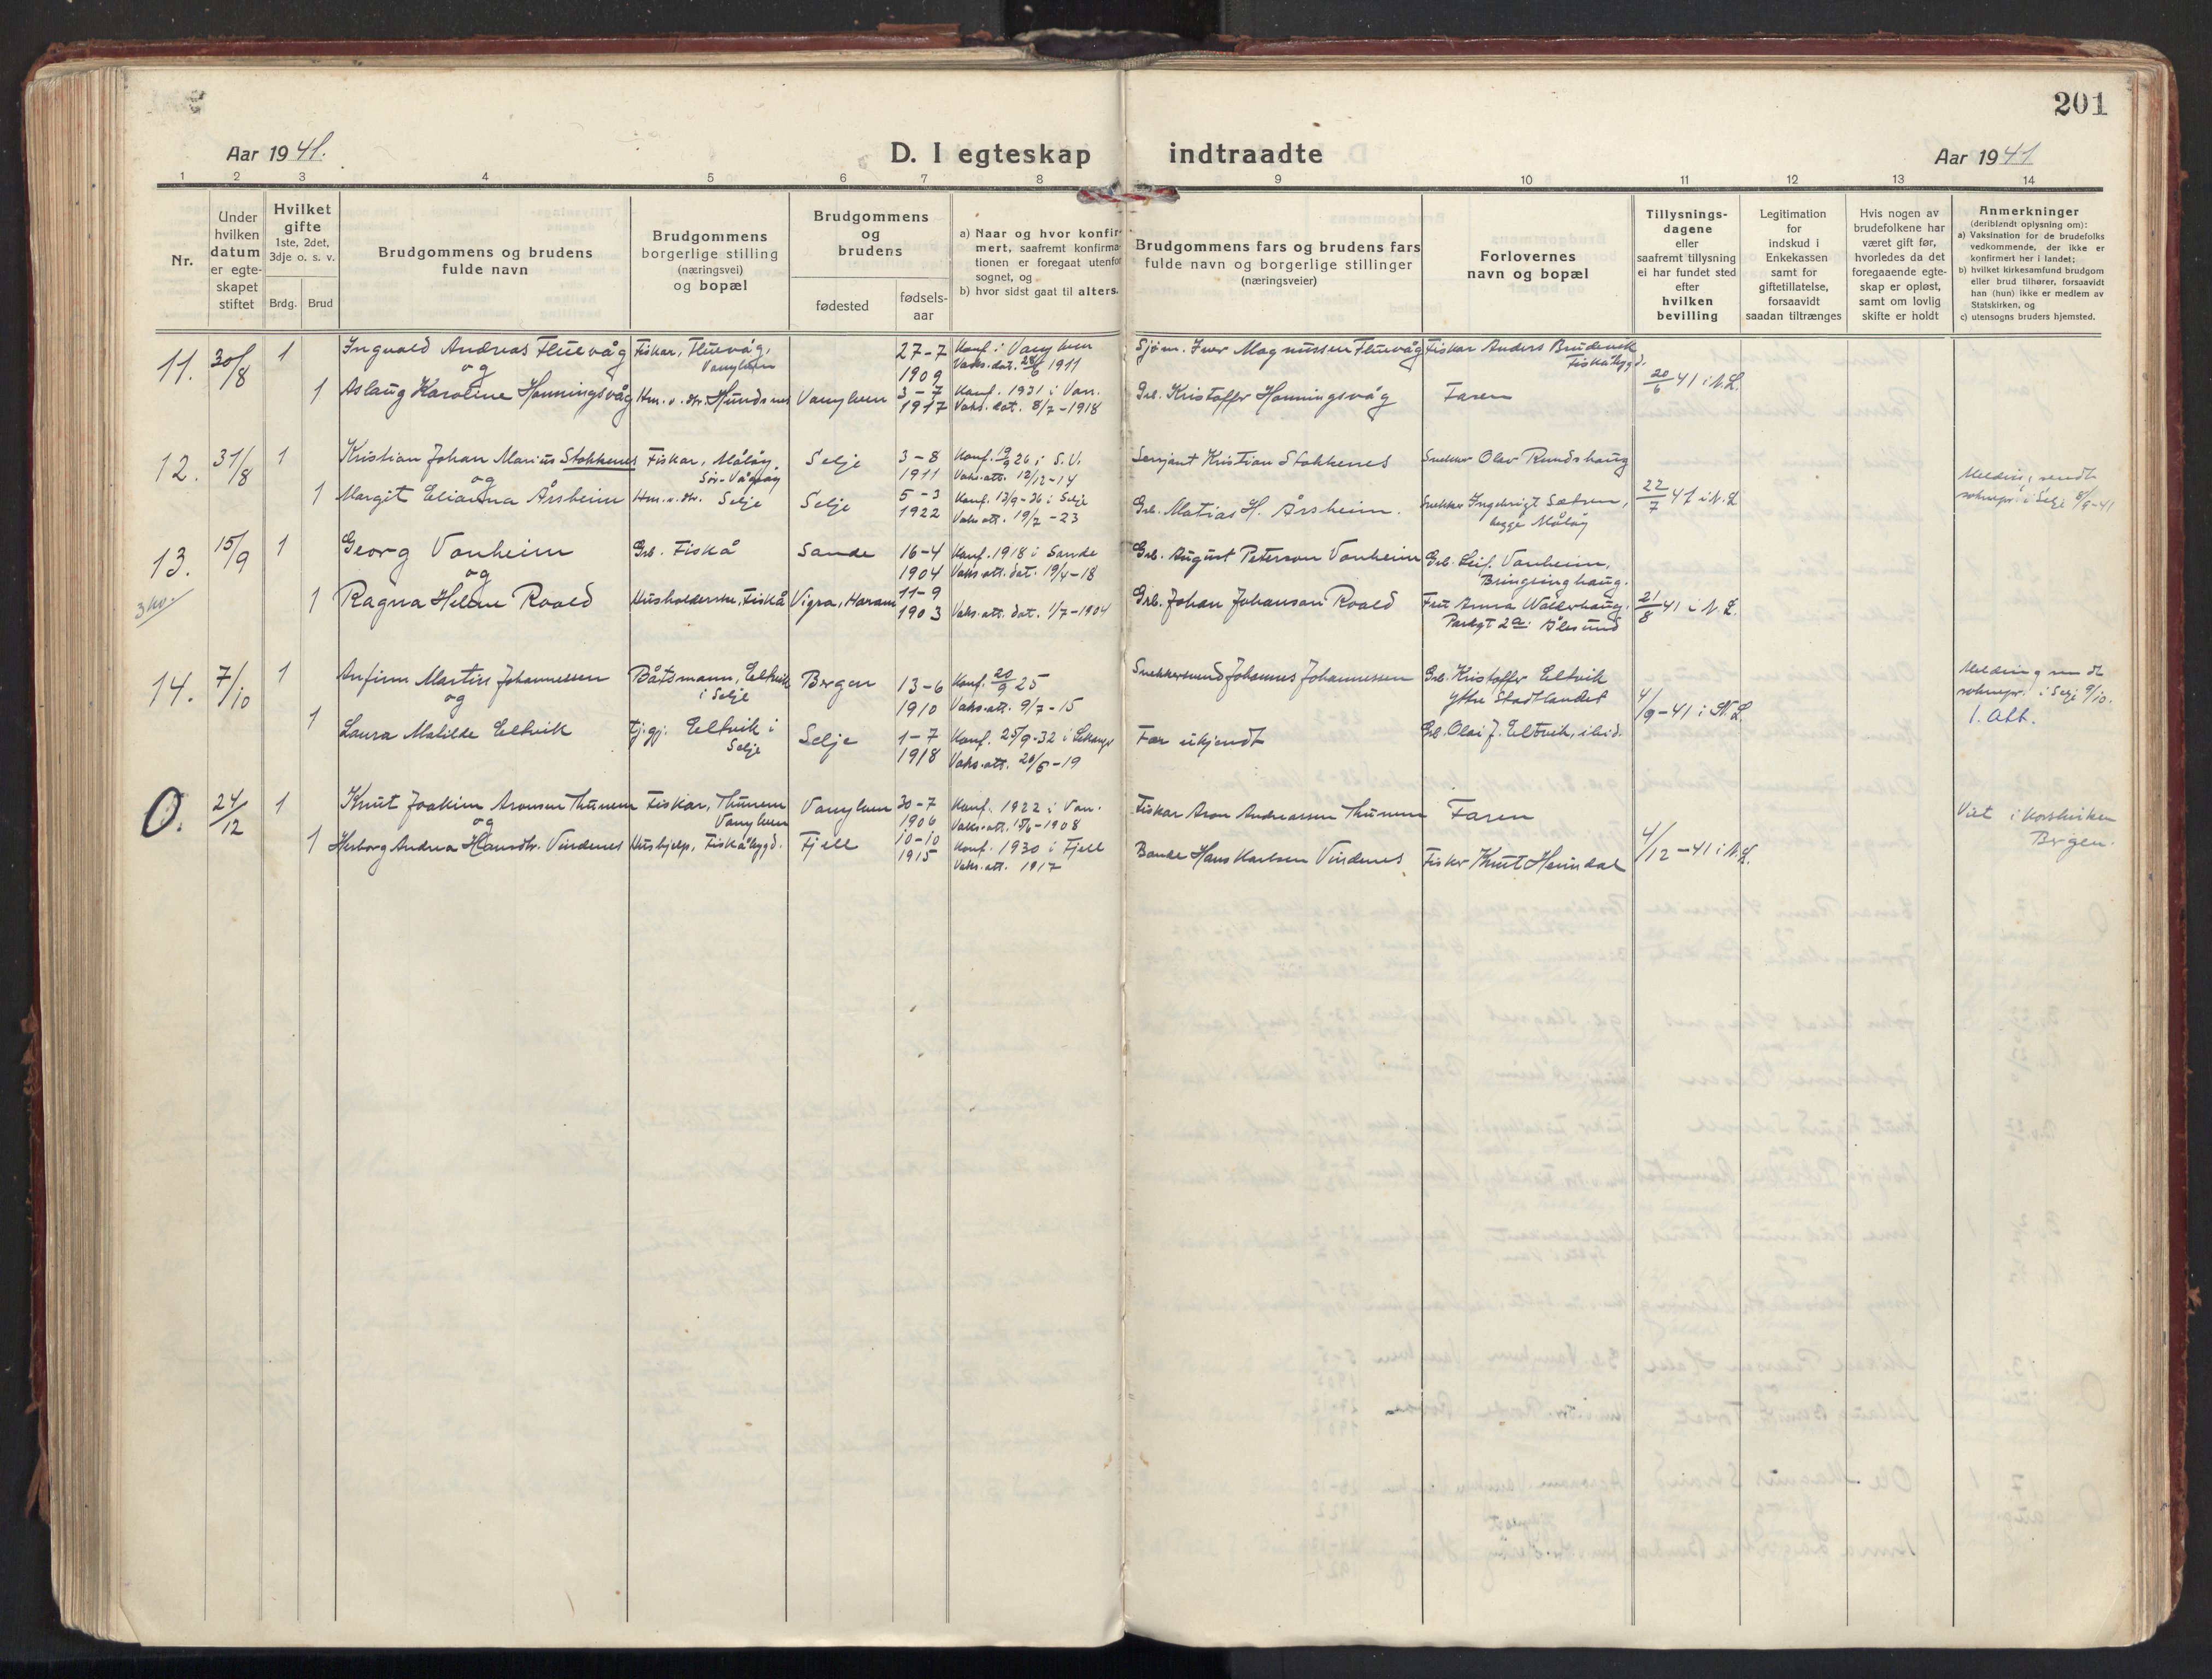 201
Aar 1941.
D. I egteskap indtraadte
Aar 1941
1 2 3 4 5 6 7 8 9 10 11 12 13 14
Nr.
Under hvilken datum er egteskapet stiftet
Hvilket gifte
1ste, 2det, 3dje o. s. v.
Brdg. Brud
Brudgommens og brudens fulde navn
Brudgommens borgerlige stilling (næringsvei) og bopæl
Brudgommens og brudens
fødested
fødsels-aar
a) Naar og hvor konfirmert, saafremt konfirmationen er foregaat utenfor sognet, og
b) hvor sidst gaat til alters.
Brudgommens fars og brudens fars fulde navn og borgerlige stillinger (næringsveier)
Forlovernes navn og bopæl
Tillysningsdagene eller saafremt tillysning ei har fundet sted efter hvilken bevilling
Legitimation for indskud i Enkekassen samt for giftetillatelse, forsaavidt saadan tiltrænges
Hvis nogen av brudefolkene har været gift før, hvorledes da det foregaaende egteskap er opløst, samt om lovlig skifte er holdt
Anmerkninger
(deriblandt oplysning om):
a) Vaksination for de brudefolks vedkommende, der ikke er konfirmert her i landet;
b) hvilket kirkesamfund brudgom eller brud tilhører, forsaavidt han (hun) ikke er medlem av Statskirken, og
c) utensogns bruders hjemsted.
11. 30/8 1 Ingvald Andreas Fluevåg Fiskar, Fluevåg, Vanylven 27-7 1909 Konf. i Vanylven Vaks. dat. 28/6 1911 Sjøm. Iver Magnussen Fluevåg Fiskar Anders Brudevik Fiskåbygd.
og
1 Aslaug Karoline Honningsvåg Hm. v. dr. Hundsnes Vanylven 3-7 1917 Konf. 1931 i Van. Vaks. dat. 8/7-1918 Grb. Kristoffer Honningsvåg Faren 20/6 41 i N.L.
12. 31/8 1 Kristian Johan Marius Stokkenes Fiskar, Måløy, Sør-Vågsøy Selje 3-8 1911 Konf. 19/9 26 i S.V. Vaks. att. 12/12-14 Serjant Kristian Stokkenes Snekker Olav Rundshaug
og
1 Margit Elianna Årsheim Hm. v. dr. Selje Selje 5-3 1922 Konf. 13/9-36 i Selje Vaks att. 19/7-23 Grb. Matias H. Årsheim. Snekker Ingebrigt Sætren, begge Måløy 22/7 41 i N.L. Melding sendt soknepr. i Selje 8/9-41
13. 15/9 1 Georg Vonheim Grb. Fiskå Sande 16-4 1904 Konf. 1918 i Sande Vaks att. dat. 19/4-18 Grb. August Peterson Vonheim Grb. Leif Vonheim, Bringsinghaug.
og
1 Ragna Helene Roald Husholderske, Fiskå Vigra, Haram 11-9 1903 Vaks. att. dat. 1/7-1904 Grb. Johan Johanson Roald Fru Anna Wollerhaug, Parkgt 2a Ålesund 21/8 41 i N.L.
14. 7/10 1 Anfinn Martin Johannessen Båtsmann, Eltvik i Selje Bergen 13-6 1910 Konf. 20/9 25 Vaks. att. 9/7-15 Snekkersvend Johannes Johannessen Grb. Kristoffer Eltvik Ytre Stadtlandet
og
1 Laura Matilde Eltvik tj. gj. Eltvik i Selje Selje 1-7 1918 Konf. 25/9-32 i Leikanger Vaks. att. 26/6-19 Far ukjendt Grb. Olai J. Eltvik, ibid. 4/9-41 i N.L. Melding sendt soknepr. i Selje 9/10.
1. att.
O. 24/12 1 Knut Joakim Aronsen Thunem Fiskar, Thunem Vanylven Vanylven 30-7 1906 Konf. 1922 i Van. Vaks. att. 15/6-1908 Fiskar Aron Andreassen Thunem Faren
og
1 Herborg Andrea Hansdtr. Vindenes Hushjelp, Fiskåbygd. Fjell 10-10 1915 Konf. 1930 i Fjell Vaks. att. 1917 Bonde Hans Karlsen Vindenes Fisker Knut Heindal 4/12-41 i N.L. Viet i Korskirken Bergen.